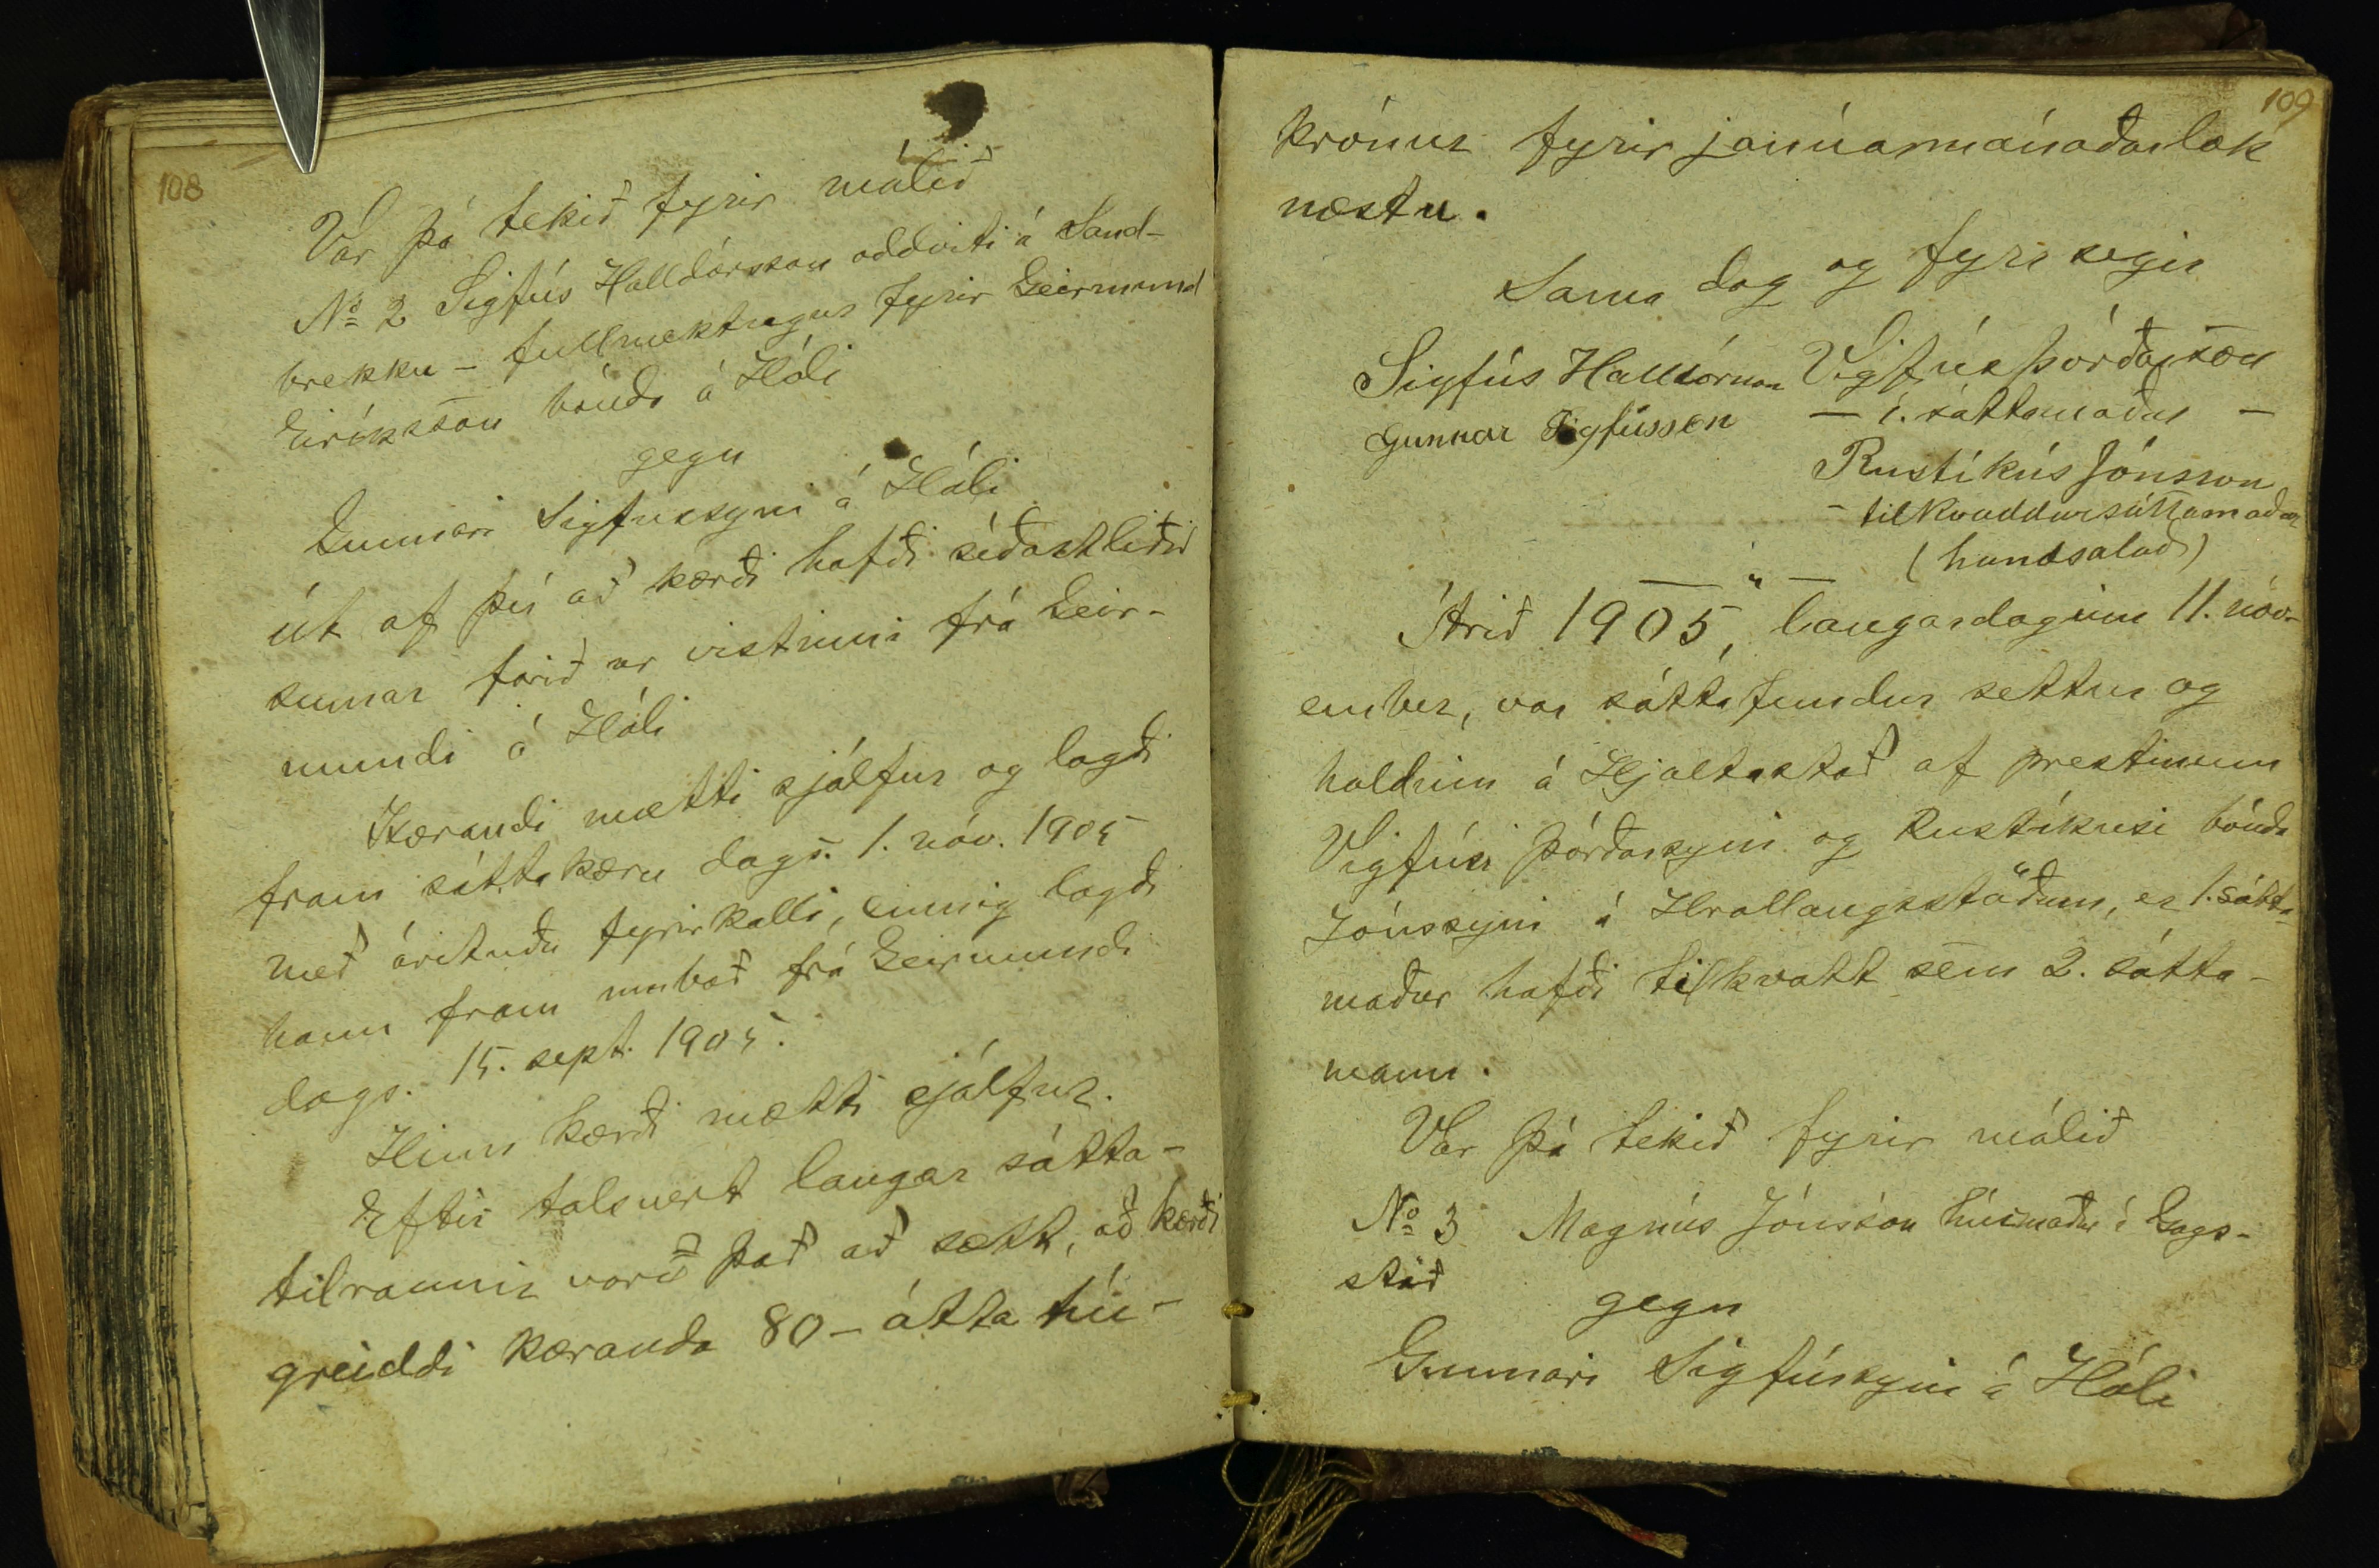 108
Var þá tekið fyrir málið
No 2 Sigfús Halldórsson oddviti á Sand-
brekku - fullmektugur fyrir Geirmund
Eiríksson bónda á Hóli
gegn
Gunnari Sigfússyni á Hóli
út af því að kærði hafði síðastliðið
sumar farið úr vistinni frá Geir-
mundi á Hóli
Kærandi mætti sjálfur og lagði
fram sáttakæru dags. 1. nóv. 1905
með árituðu fyrirkalli, einnig lagði
hann fram umboð frá Geirmundi
dags. 15. sept. 1905.
Hinn kærði mætti sjálfur.
Eftir talsvert langar sátta-
tilraunir varð það að sætt, að kærði
greiddi kæranda 80 - átta tíu -
109
krónur fyrir janúarmánaðarlok
næstu.
Sama dag og fyr segir
Sigfús Halldórsson Vigfús Þórðarson
Gunnar Sigfússon - 1. sáttamaður -
Rustíkús Jónsson
- tilkvaddur sáttamaður
(handsalað)
Árið 1905, laugardaginn 11. nóv-
ember, var sáttafundur settur og
haldinn á Hjaltastað af prestinum
Vigfúsi Þórðarsyni og Rustíkusi bónda
Jónssyni á Hrollaugsstöðum, er 1. sátta-
maður hafði tilkvatt sem 2. sátta-
mann.
Var þá tekið fyrir málið
No 3 Magnús Jónsson húsmaður í Gags-
stað
gegn
Gunnari Sigfússyni á Hóli